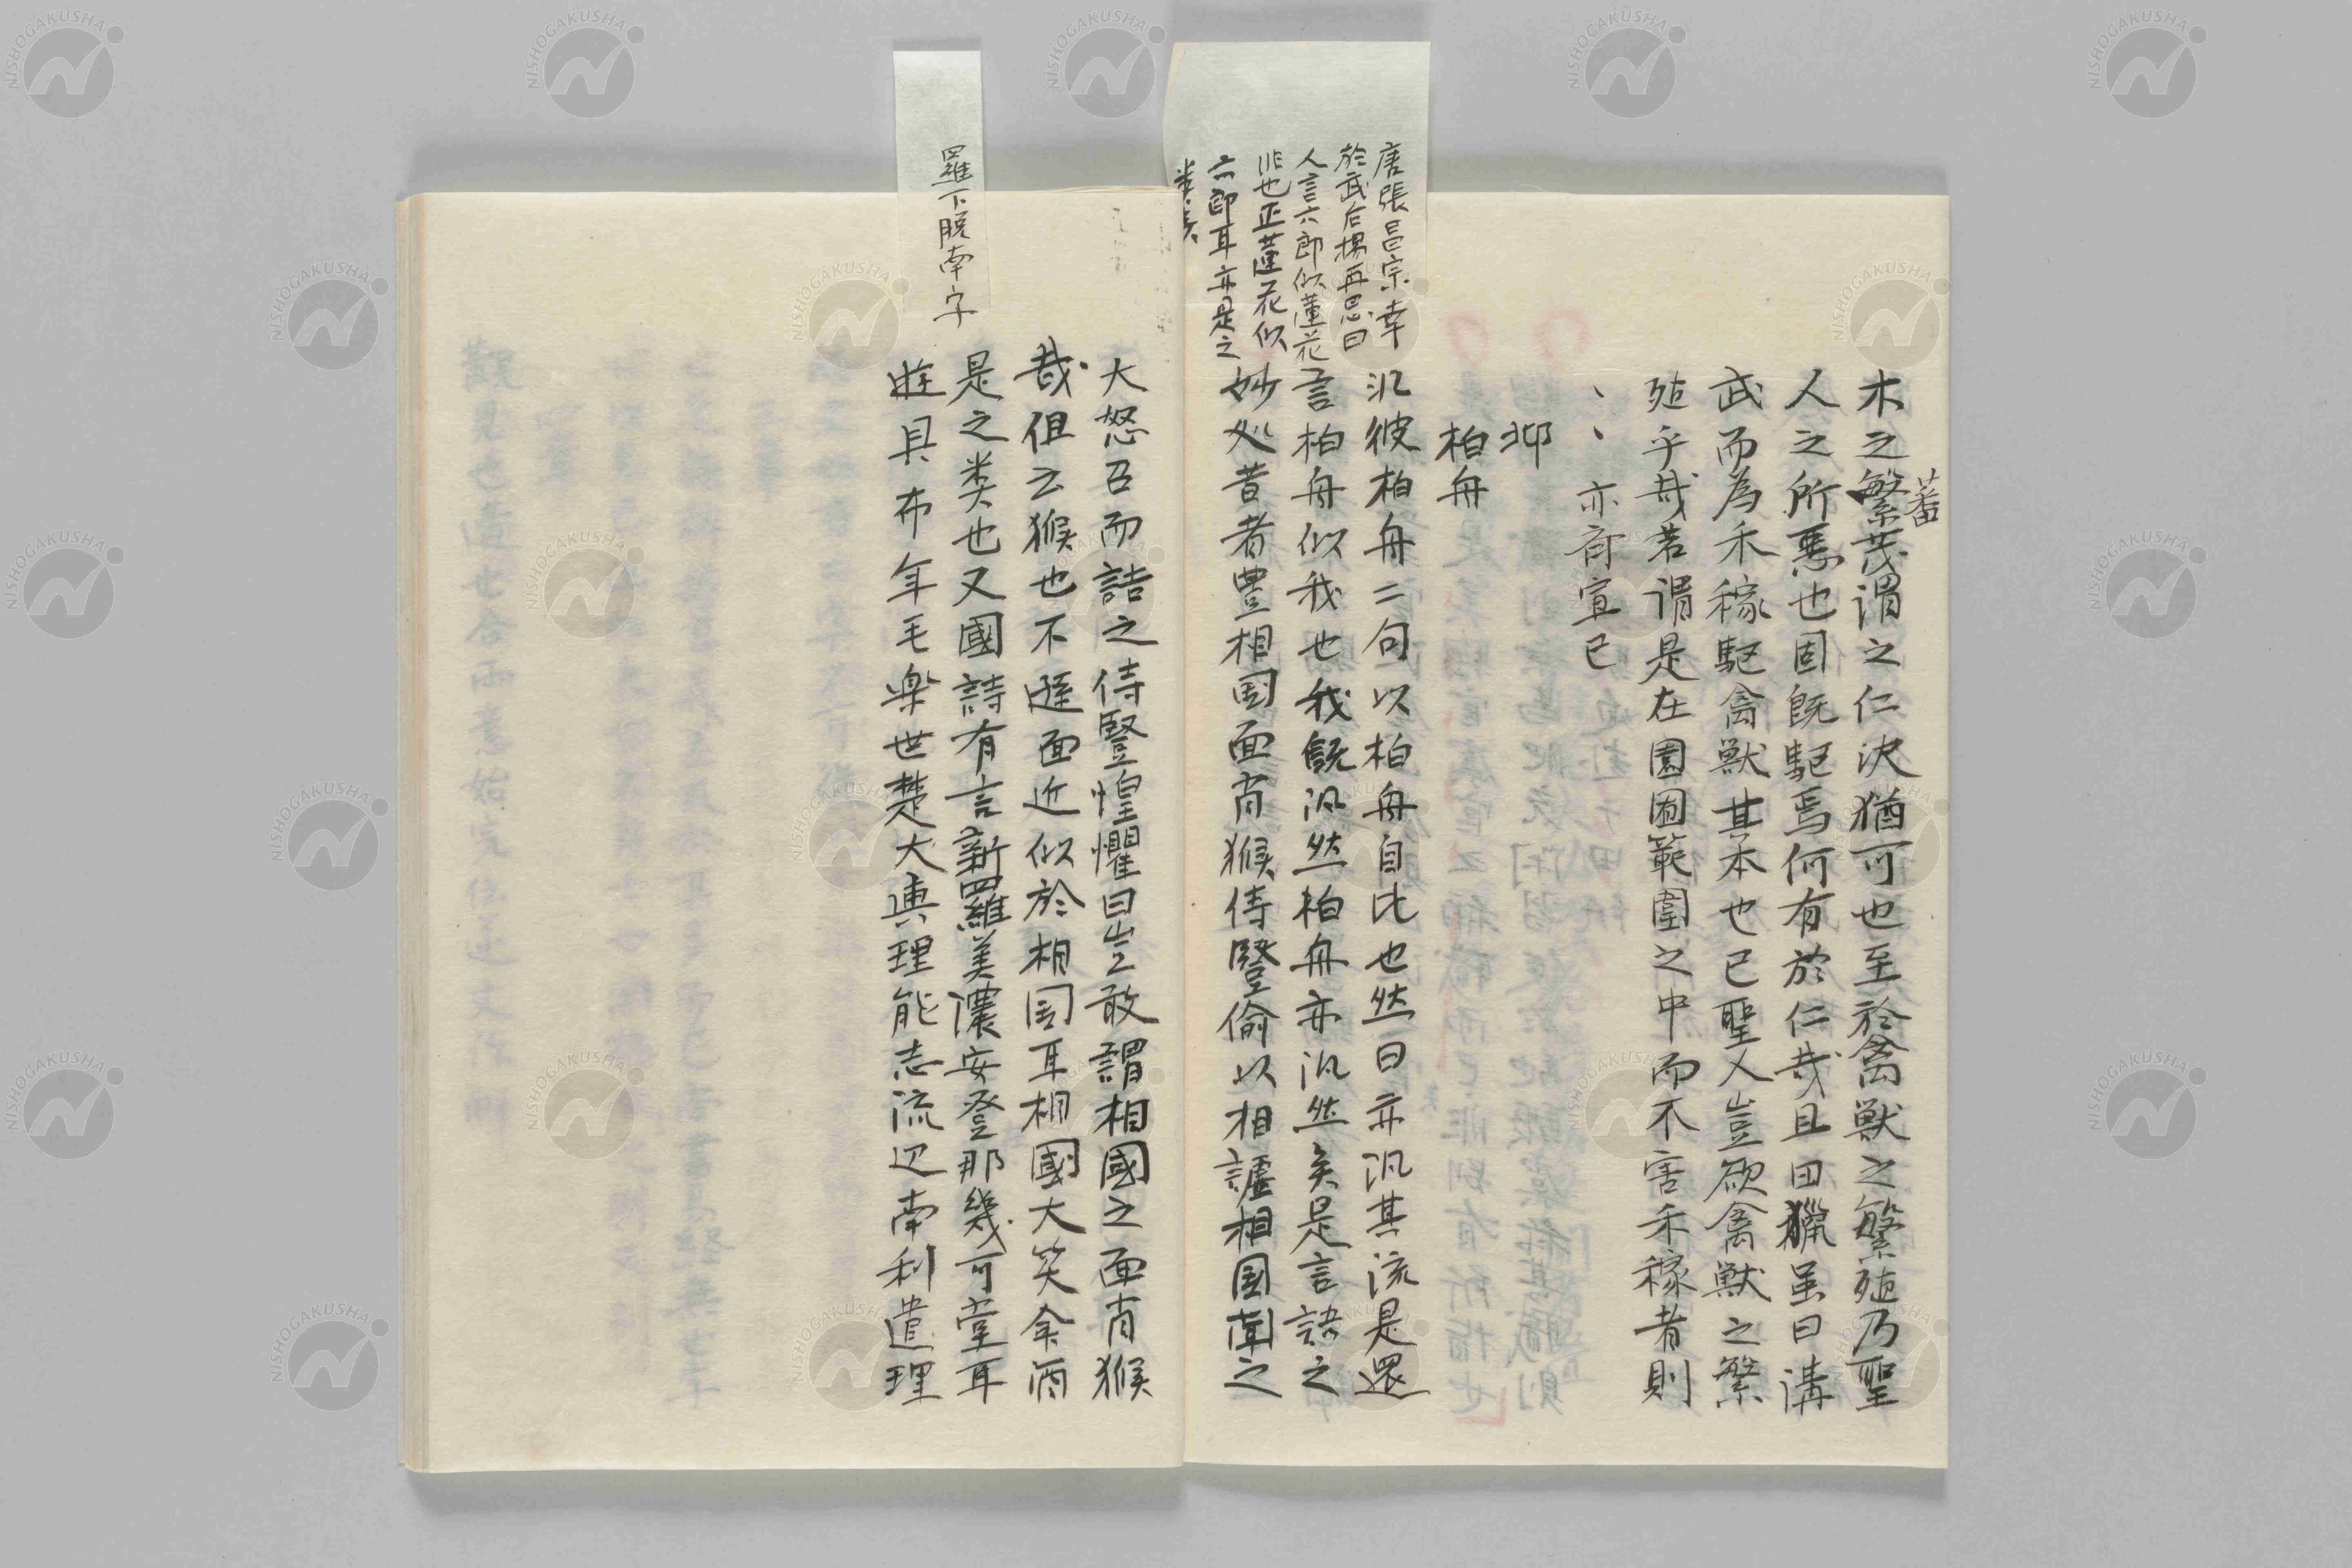 木之繁茂謂之仁決猶可也至於禽獣之繁殖乃聖
蕃
人之所悪也固既駆焉何有於仁哉且田猟虽曰講
武而為禾稼駆禽獣其本也已聖人豈欲禽獣之繁
殖乎哉若謂是在園囿範圍之中而不害禾稼者則
、、亦斉宣已
邶
柏舟
汎彼柏舟二句以柏舟自比也然曰亦汎其流是還
言柏舟似我也我既汎然柏舟亦汎然矣是言語之
妙処昔者豊相国面肖猴侍豎偷以相謔相国聞之
唐張昌宗幸
於武后楊再思曰
人言六郎似蓮花
非也正蓮花似
六郎耳亦是之
类矣
大怒召而詰之侍豎惶懼曰豈敢謂相國之面肖猴
哉但云猴也不遜面近似於相国耳相國大笑余酒
是之类也又國詩有言新羅美濃安登那幾可堂耳
羅下脱南字
雎具布年毛楽世楚大與理能志流辺南利遣理